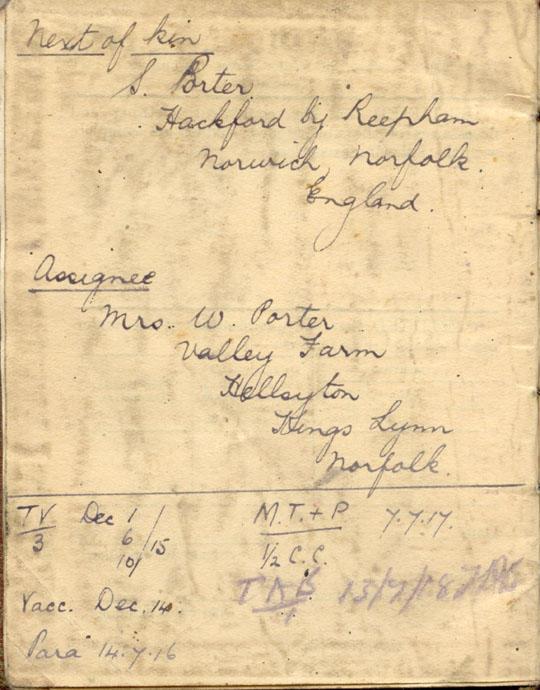 Next of kin
S. Porter
Hackford by Reepham
Norwich, Norfolk.
England.
Assignee
Mrs. W. Porter
Valley Farm
Kings Lynn
Norfolk.
TV Dec 1 /
3 6 /15
10/
M.T.+P 7.7.17.
1/2 C.C.
Vacc. Dec. 14.
TAB 13/7/18
1
Para 14.7.16